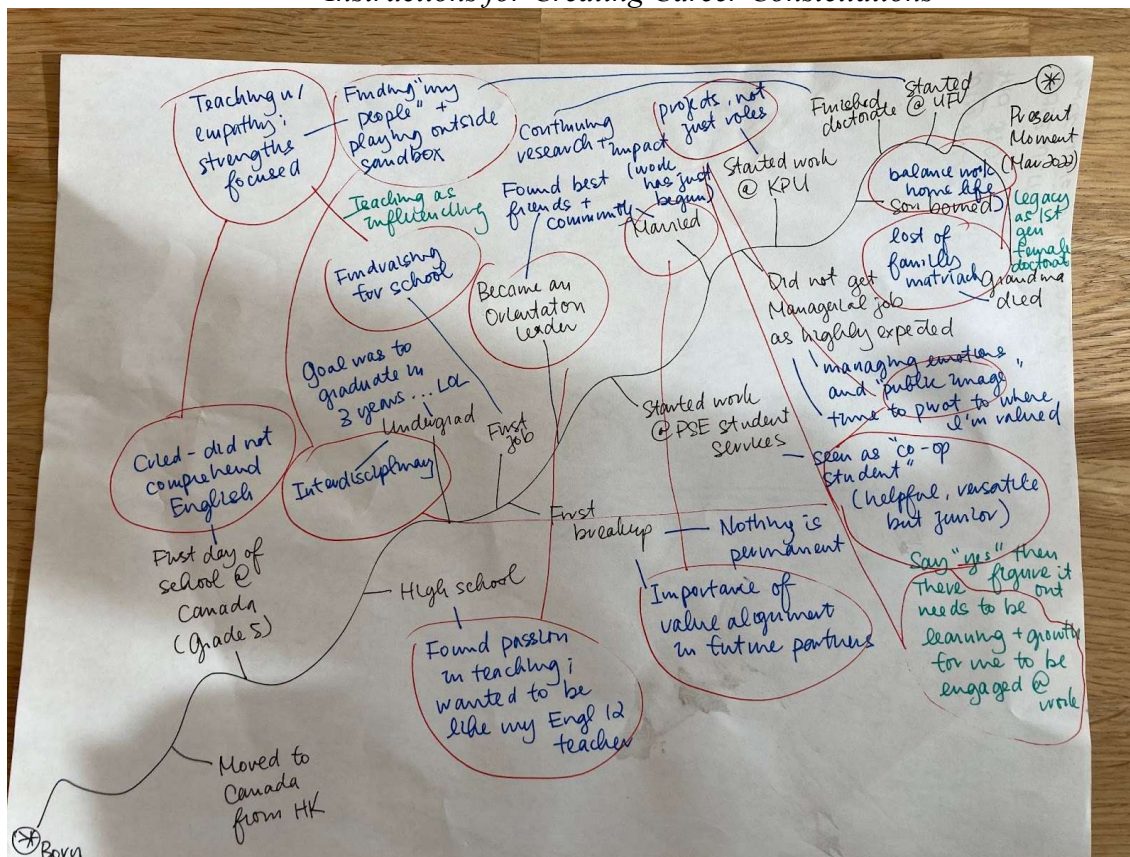 Instructions for Creating Career Constellations
Teaching w/
empathy;
strengths
focused
Finding "my
people" +
playing outside
sandbox
Teaching as
influencing
Continuing
research + impact
(work
has just
begun)
projects, not
just roles
Finished
doctorate
Started
@ UFV
Present
Moment
(Mar 2022)
Started work
@ KPU
balance work
home life
son borned
Legacy
as 1st
gen
female
doctorate
Found best
friends +
community
Married
Fundraising
for school
Became an
Orientation
leader
lost of
family
matriach
Grandma
died
Did not get
Managerial job
as highly expected
managing emotions
and "public image"
time to pivot to where
I'm valued
Goal was to
graduate in
3 years ... LOL
Undergrad
First
job
Started work
@ PSE student
services
seen as "co-op
student"
(helpful, versatile
but junior)
Cried - did not
comprehend
English
Interdisciplinary
First
breakup
Nothing is
permanent
First day of
school @
Canada
(Grade 5)
High school
Importance of
value alignment
in future partners
Say "yes" then
figure it
out
There
needs to be
learning + growth
for me to be
engaged @
work
Found passion
in teaching;
wanted to be
like my Engl 12
teacher
Moved to
Canada
from HK
Born